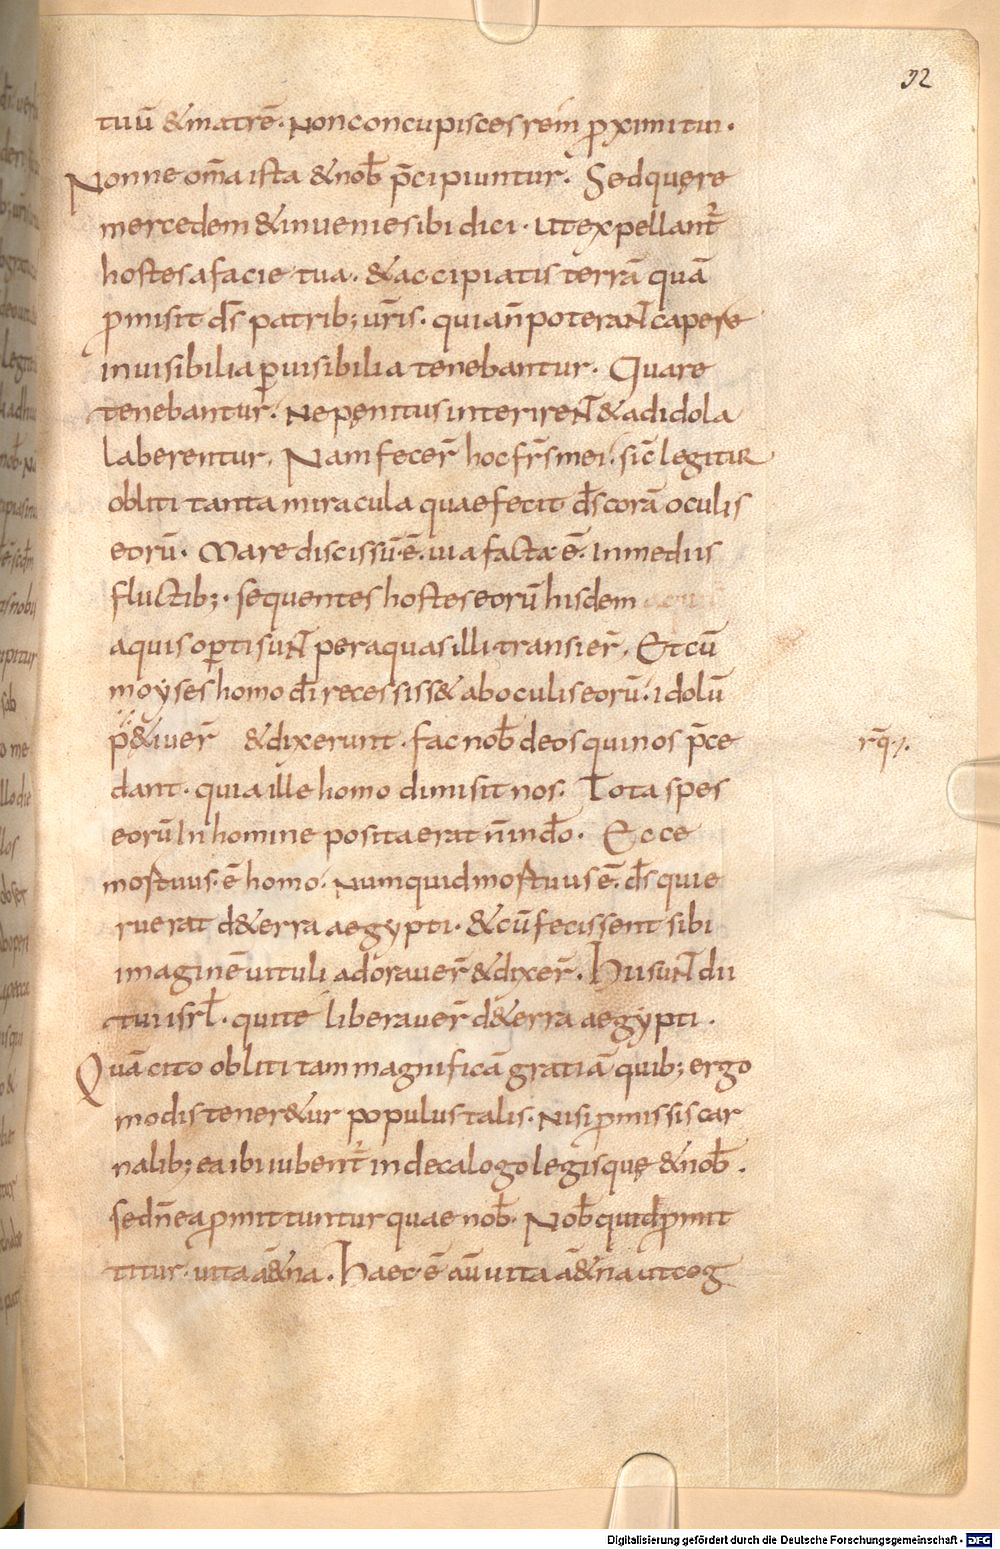 32
tuū &matrē. Non concupisces rem p̱ximi tui.
Nonne om̄a ista & nob̄ p̄cipiuntur. Sed quęre
mercedem & inuenies ibi dici. ut expellant̄
hostes a facie tua. & accipiatis terrā quā
p̱misit d̄s patrib; ur̄is. qui an̄ poterant capere
inuisibilia ꝑ uisibilia tenebantur. Quare
tenebantur. Ne pęnitus interirent & ad idola
laberentur. Nam fecer̄ hoc fr̄s mei. sic̄ legitur
obliti tanta miracula quae fecit d̄s corā oculis
eorū. Mare discissū.ē. uia facta.ē. In mediis
fluctib;. sequentes hostes eorū hisdem
aquis oꝑti sunt per aquas illi transier̄. Et cū
moyses homo d̄i recessiss& ab oculis eorū. idolū
p&iuer̄ & dixerunt. fac nob̄ deos qui nos p̄ce
dant. quia ille homo dimisit nos. Tota spes
eorū In homine posita erat n̄ in d̄o. Ecce
mortuus.ē homo. Numquid mortuus ē. d̄s qui e
ruerat d&erra aegypti. & cū fecissent sibi
imaginē uituli adorauer̄ & dixer̄. Hii sunt dii
tui isrl̄. qui te liberauer̄ d&erra aegypti.
Quā cito obliti tam magnificā gratiā quib; ergo
modis tener&ur populus talis. Nisi p̱missis car
nalib; ea ibi iubent̄ in decalogo legis quę & nob̄.
sed n̄ ea p̱mittuntur quae nob̄. Nob̄ quid p̱mit
titur. uita ā&na. Haec.ē aū uita ā&na ut cog
rq̄.
Digitalisierung gefördert durch die Deutsche Forschungsgemeinschaft - DFG